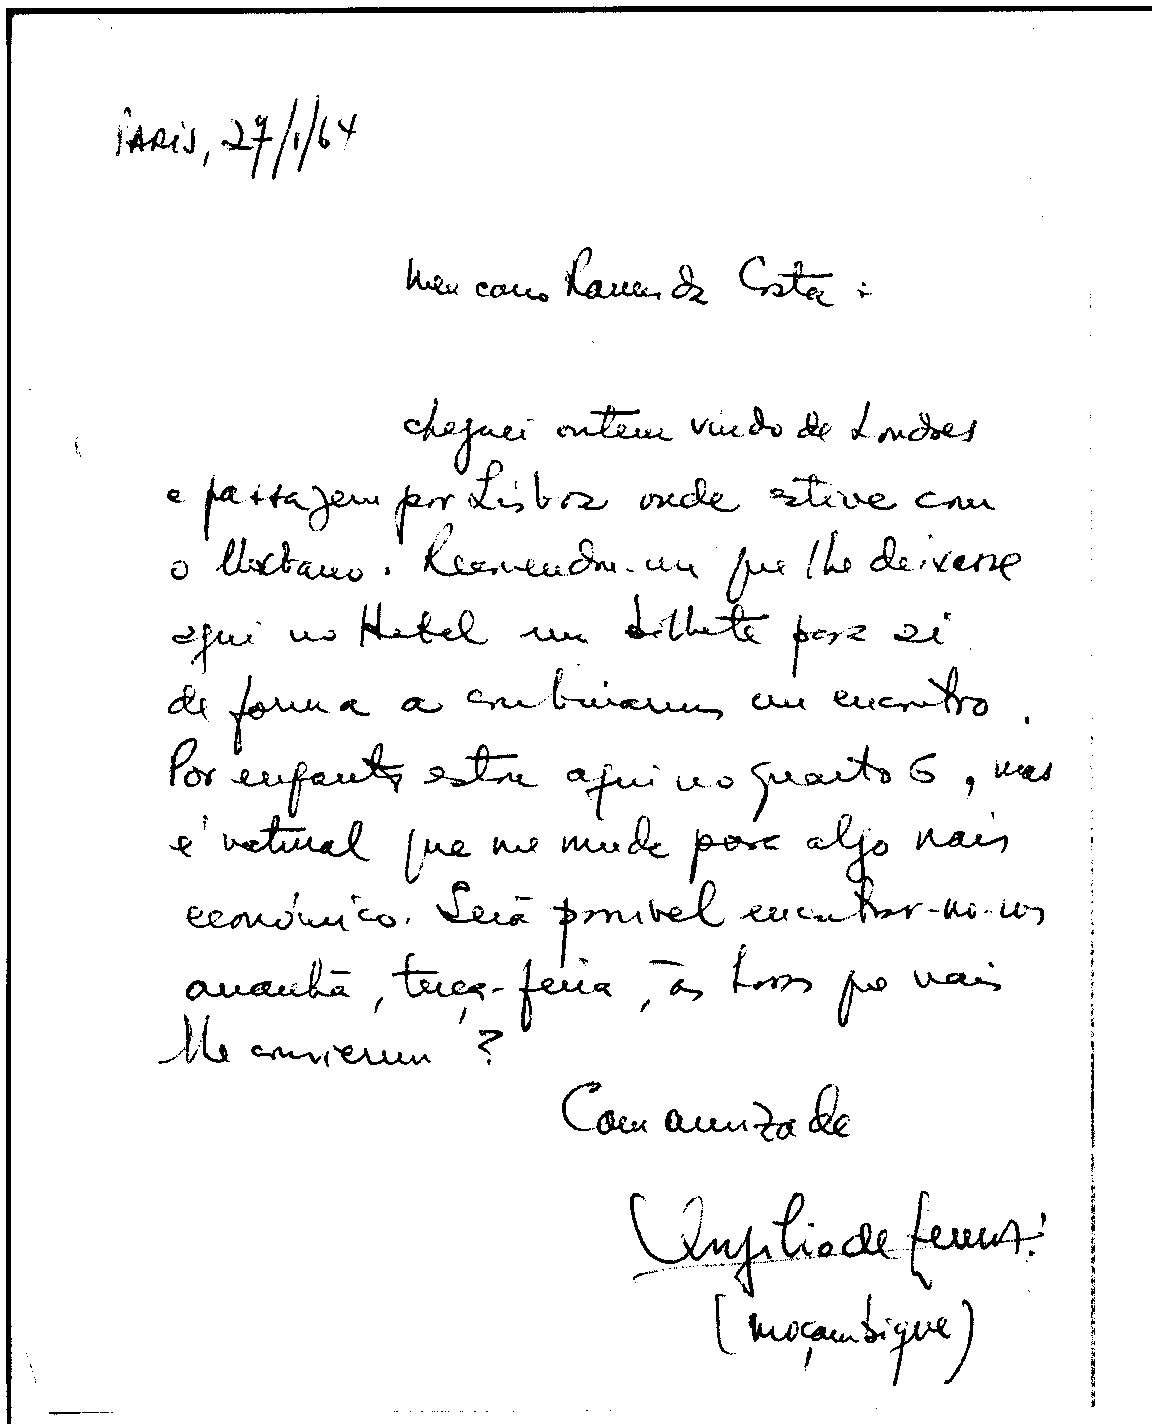 PARIS, 27/1/64
Meu caro Ramos da Costa:
cheguei ontem vindo de Londres
e passagem por Lisboa onde estive com
o Urbano. Recomendou-me que lhe deixasse
aqui no Hotel um bilhete para si
de forma a combinarmos um encontro.
Por enquanto estou aqui no quarto 6, mas
é natural que me mude para algo mais
económico. Será possível encontrar-mo-nos
amanhã, terça-feira, às horas que mais
lhe convierem?
Com amizade
Virgílio de Lemos
(Moçambique)